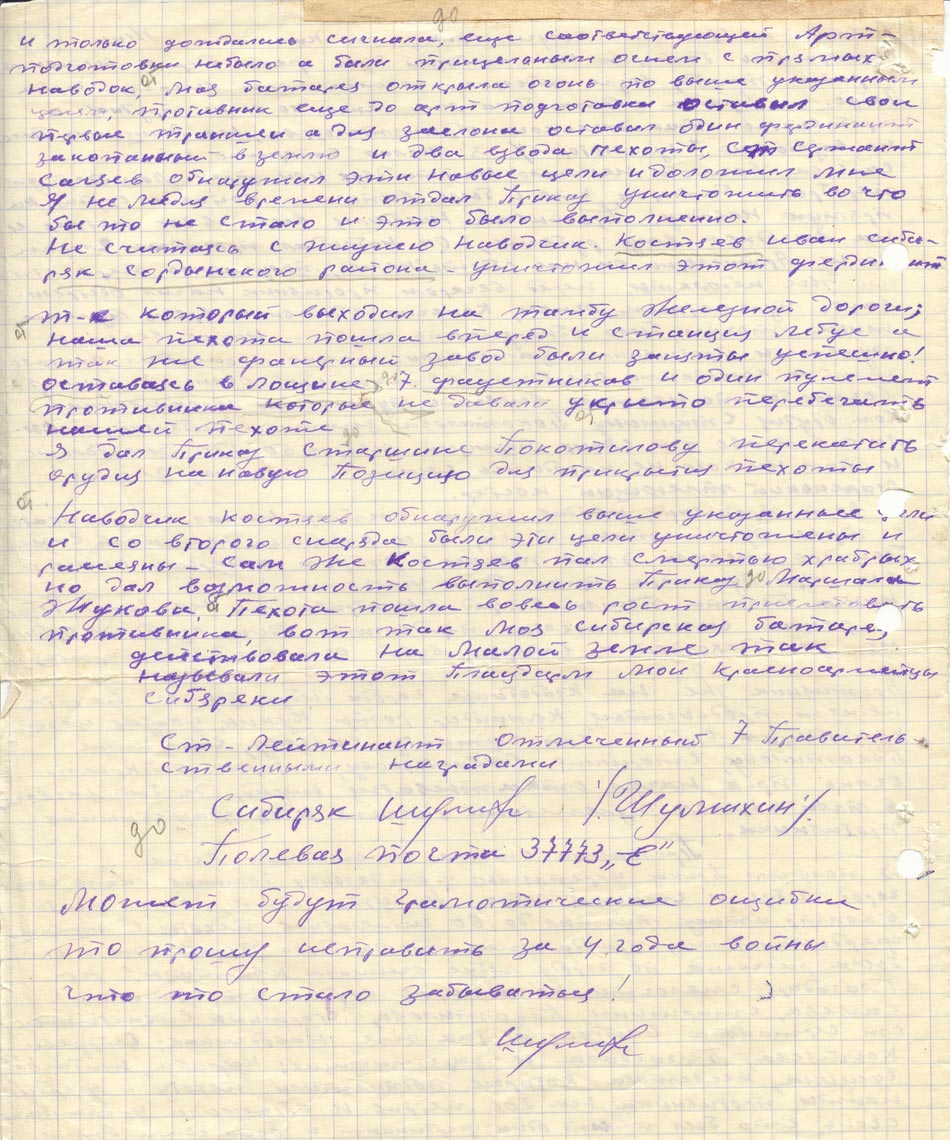 до
и только дождались сигнала, еще соответствующей Арт-
подготовки небыло а были прицельным огнем с прямых
от
Наводок, Моя батарея открыла огонь по выше указанным
целям, противник еще до арт подготовки оставил свои
первые траншеи а для заслона оставил один фердинант
закопанный в землю и два взвода пехоты, Ст Сержант
обнаружил эти новые цели и доложил мне
Я не времени отдал Приказ уничтожить во что
бы то не стало и это было выполненно.
Не считаясь с жизнею Наводчик. Костяев Иван сиби-
ряк - района - уничтожил этот фердинант
от
который выходил на дамбу Железной дороги,
наша пехота пошла вперед и станция Лебус а
так же фанерный завод были заняты успешно!
до
оставаясь в Лощине 7. фаустников и один пулемет
противника которые не давали укрыто перебежать
от
нашей пехоте
до
Я дал Приказ Старшине Покотилову перекатить
орудия на новую Позицию для прикрытия пехоты
от
Наводчик Костяев обнаружил выше указанные цели
и со второго снаряда были эти цели уничтожены и
рассеяны - Сам же Костяев пал смертью храбрых
но дал возможность выполнить Приказ до Маршала
Жукова, от Пехота пошла вовесь рост
противника, вот так Моя сибирская батарея
действовала на Малой Земле так
называли этот Плацдарм мои красноармейцы
сибзряки
Ст-Лейтинант отмеченный 7 Правитель-
ственными наградами
Сибиряк /Шулмихин/.
до
Полевая почта 37773 „Е"
Может будут Грамотические ошибки
то прошу исправить за 4 года войны
что то стало забываться!